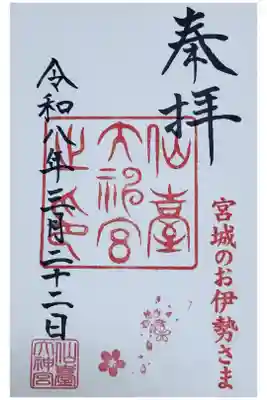 奉拝
宮城のお伊勢さま
仙臺
大神宮
之印
令和八年三月二十二日
仙臺
大神宮